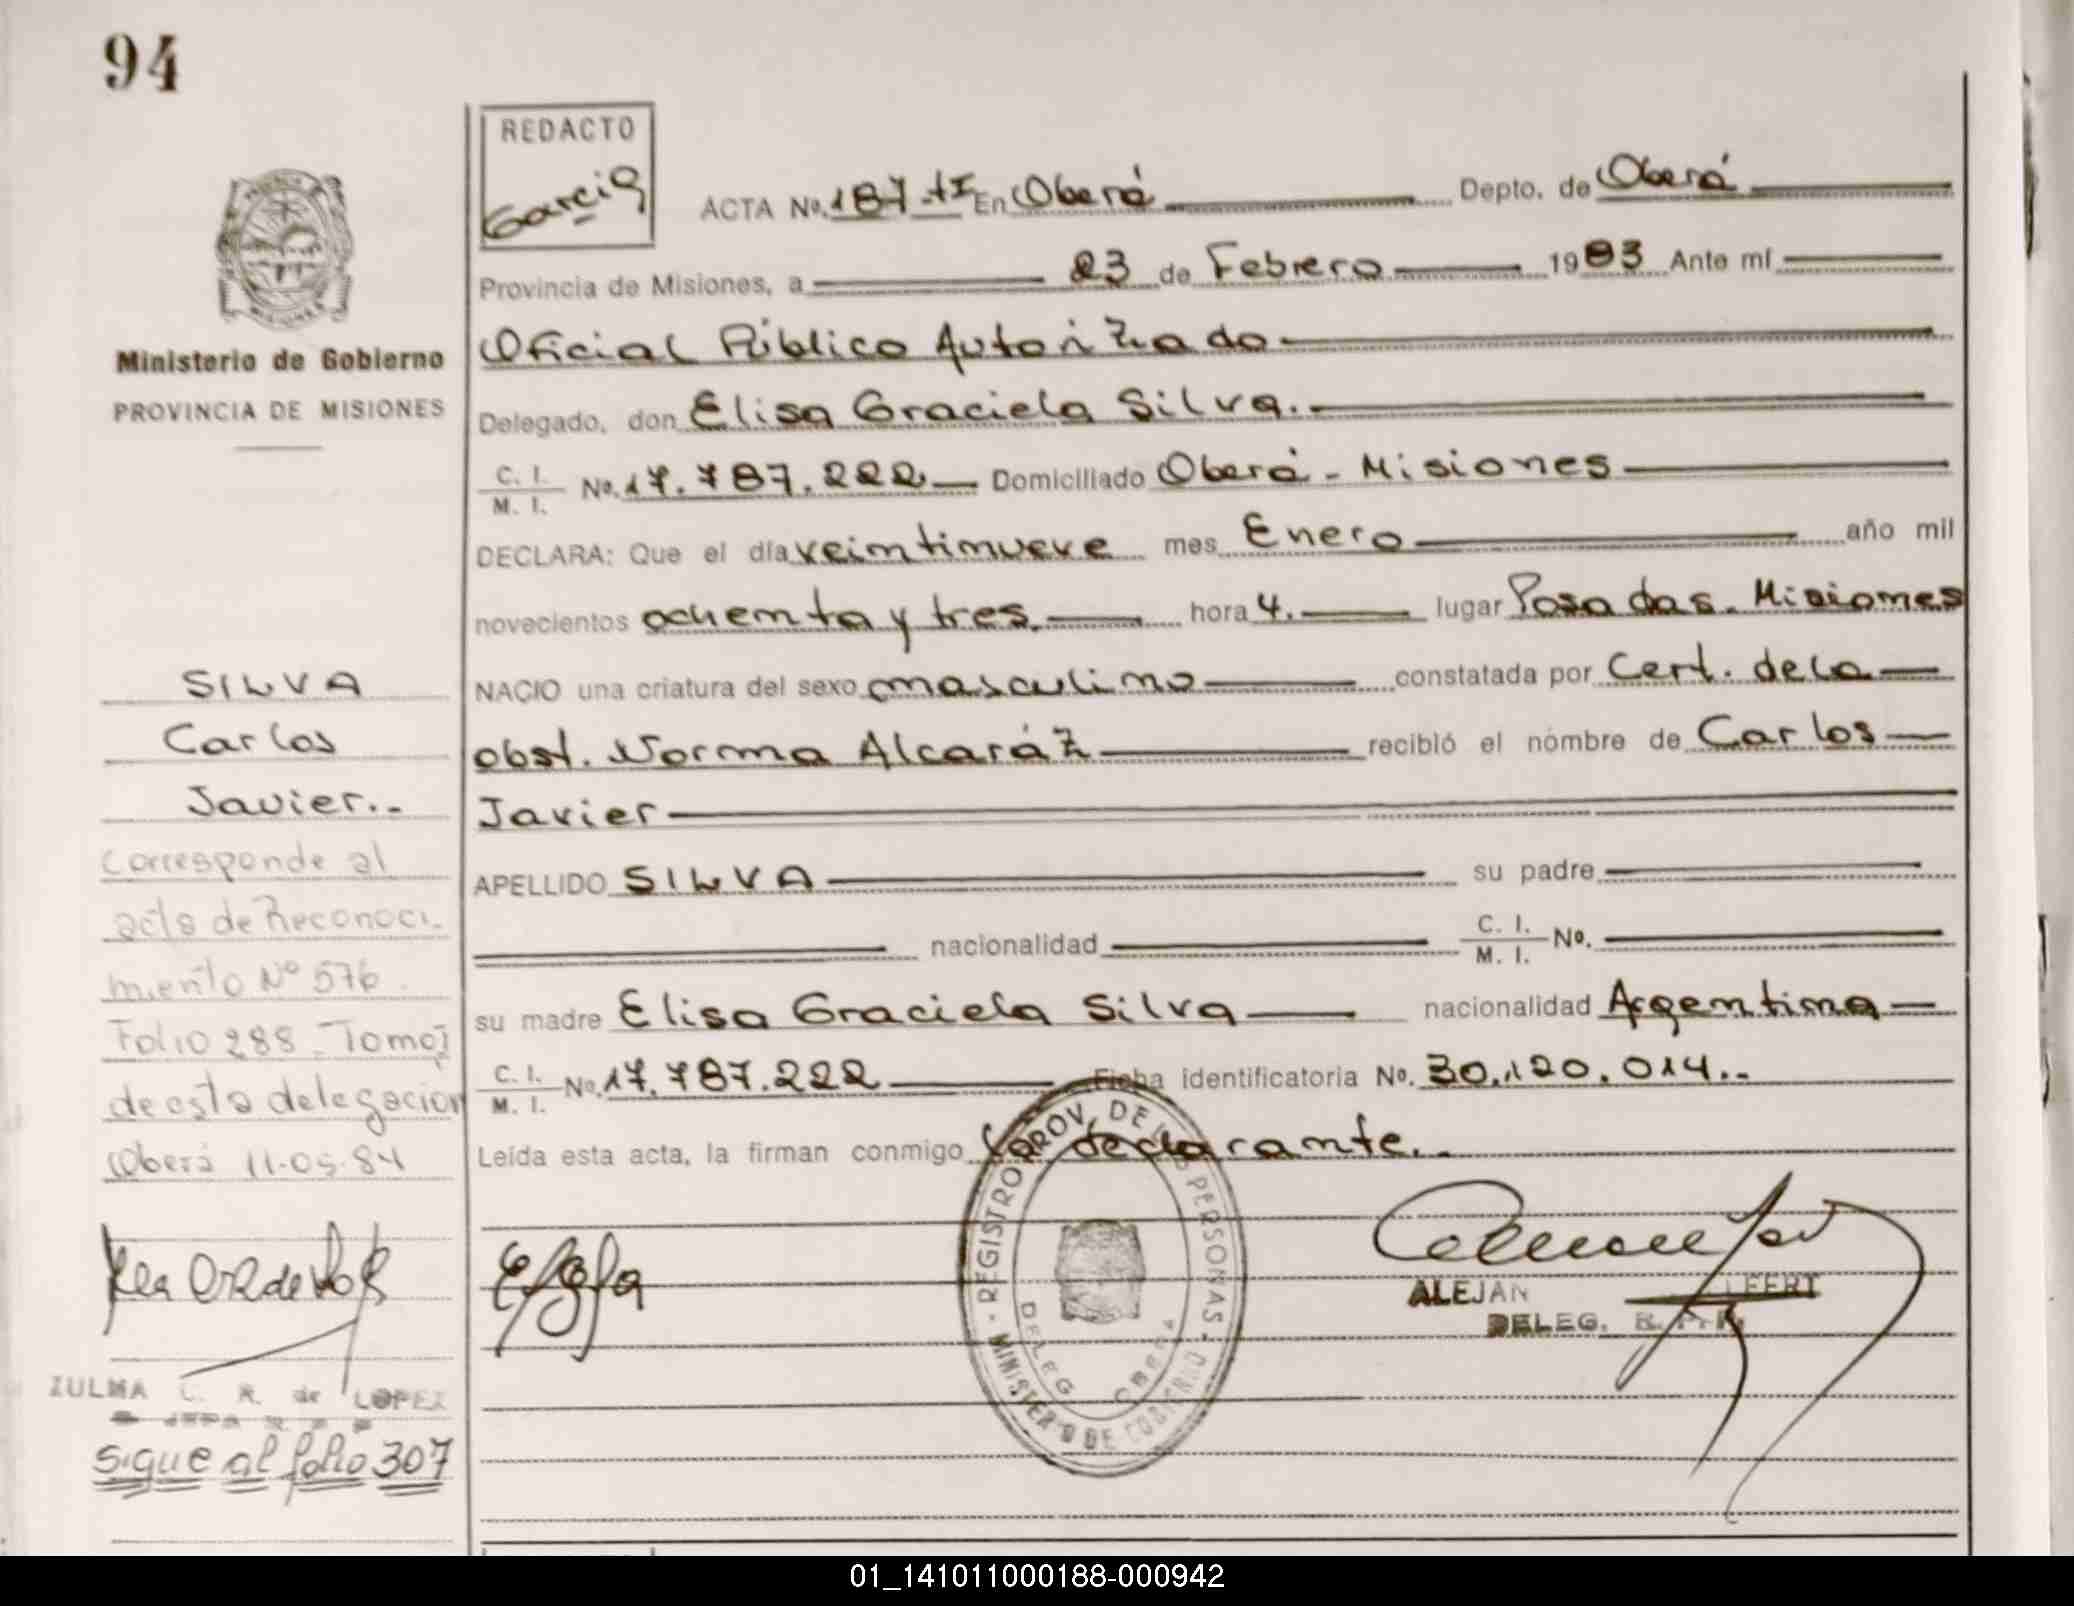 94
REDACTO
Garcia
ACTA No. 187 -tI En Oberá Depto. de Oberá
Provincia de Misiones, a 23 de Febrero 1983 Ante mí
Oficial Público Autorizado
Delegado, don Elisa Graciela Silva.
C. I. M. I. No. 17.787.222 Domiciliado Oberá - Misiones
DECLARA: Que el día veintinueve mes Enero año mil
novecientos ochenta y tres. hora 4. lugar Posadas. Misiones
NACIO una criatura del sexo masculino constatada por Cert. de la
obst. Norma Alcaráz recibió el nombre de Carlos
Javier
APELLIDO SILVA su padre
nacionalidad C. I. M. I. No.
su madre Elisa Graciela Silva nacionalidad Argentina
C. I. M. I. No. 17.787.222 Ficha identificatoria No. 30.120.014..
Leída esta acta, la firman conmigo la declarante..
REGISTRO PROV. DE LAS PERSONAS - MINISTERIO DE GOBIERNO
DELEG OBERA
ALEJAN LFERT
DELEG. R. P. P.
MISIONES
Ministerio de Gobierno
PROVINCIA DE MISIONES
SILVA
Carlos
Javier..
Corresponde al
acta de Reconoci-
miento Nº 576.
Folio 288 - Tomo I
de esta delegacion
Oberá 11-05-84
ZULMA C. R. de LOPEZ
JEFA R. P. P.
sigue al folio 307
01_141011000188-000942